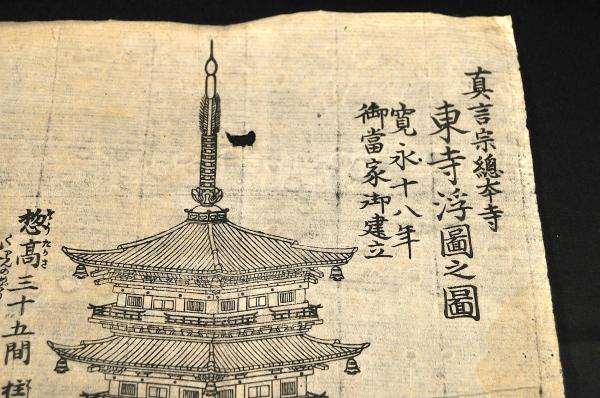 真言宗總本寺
東寺浮圖之圖
寛永十八年
御當家御建立
惣高三十五間